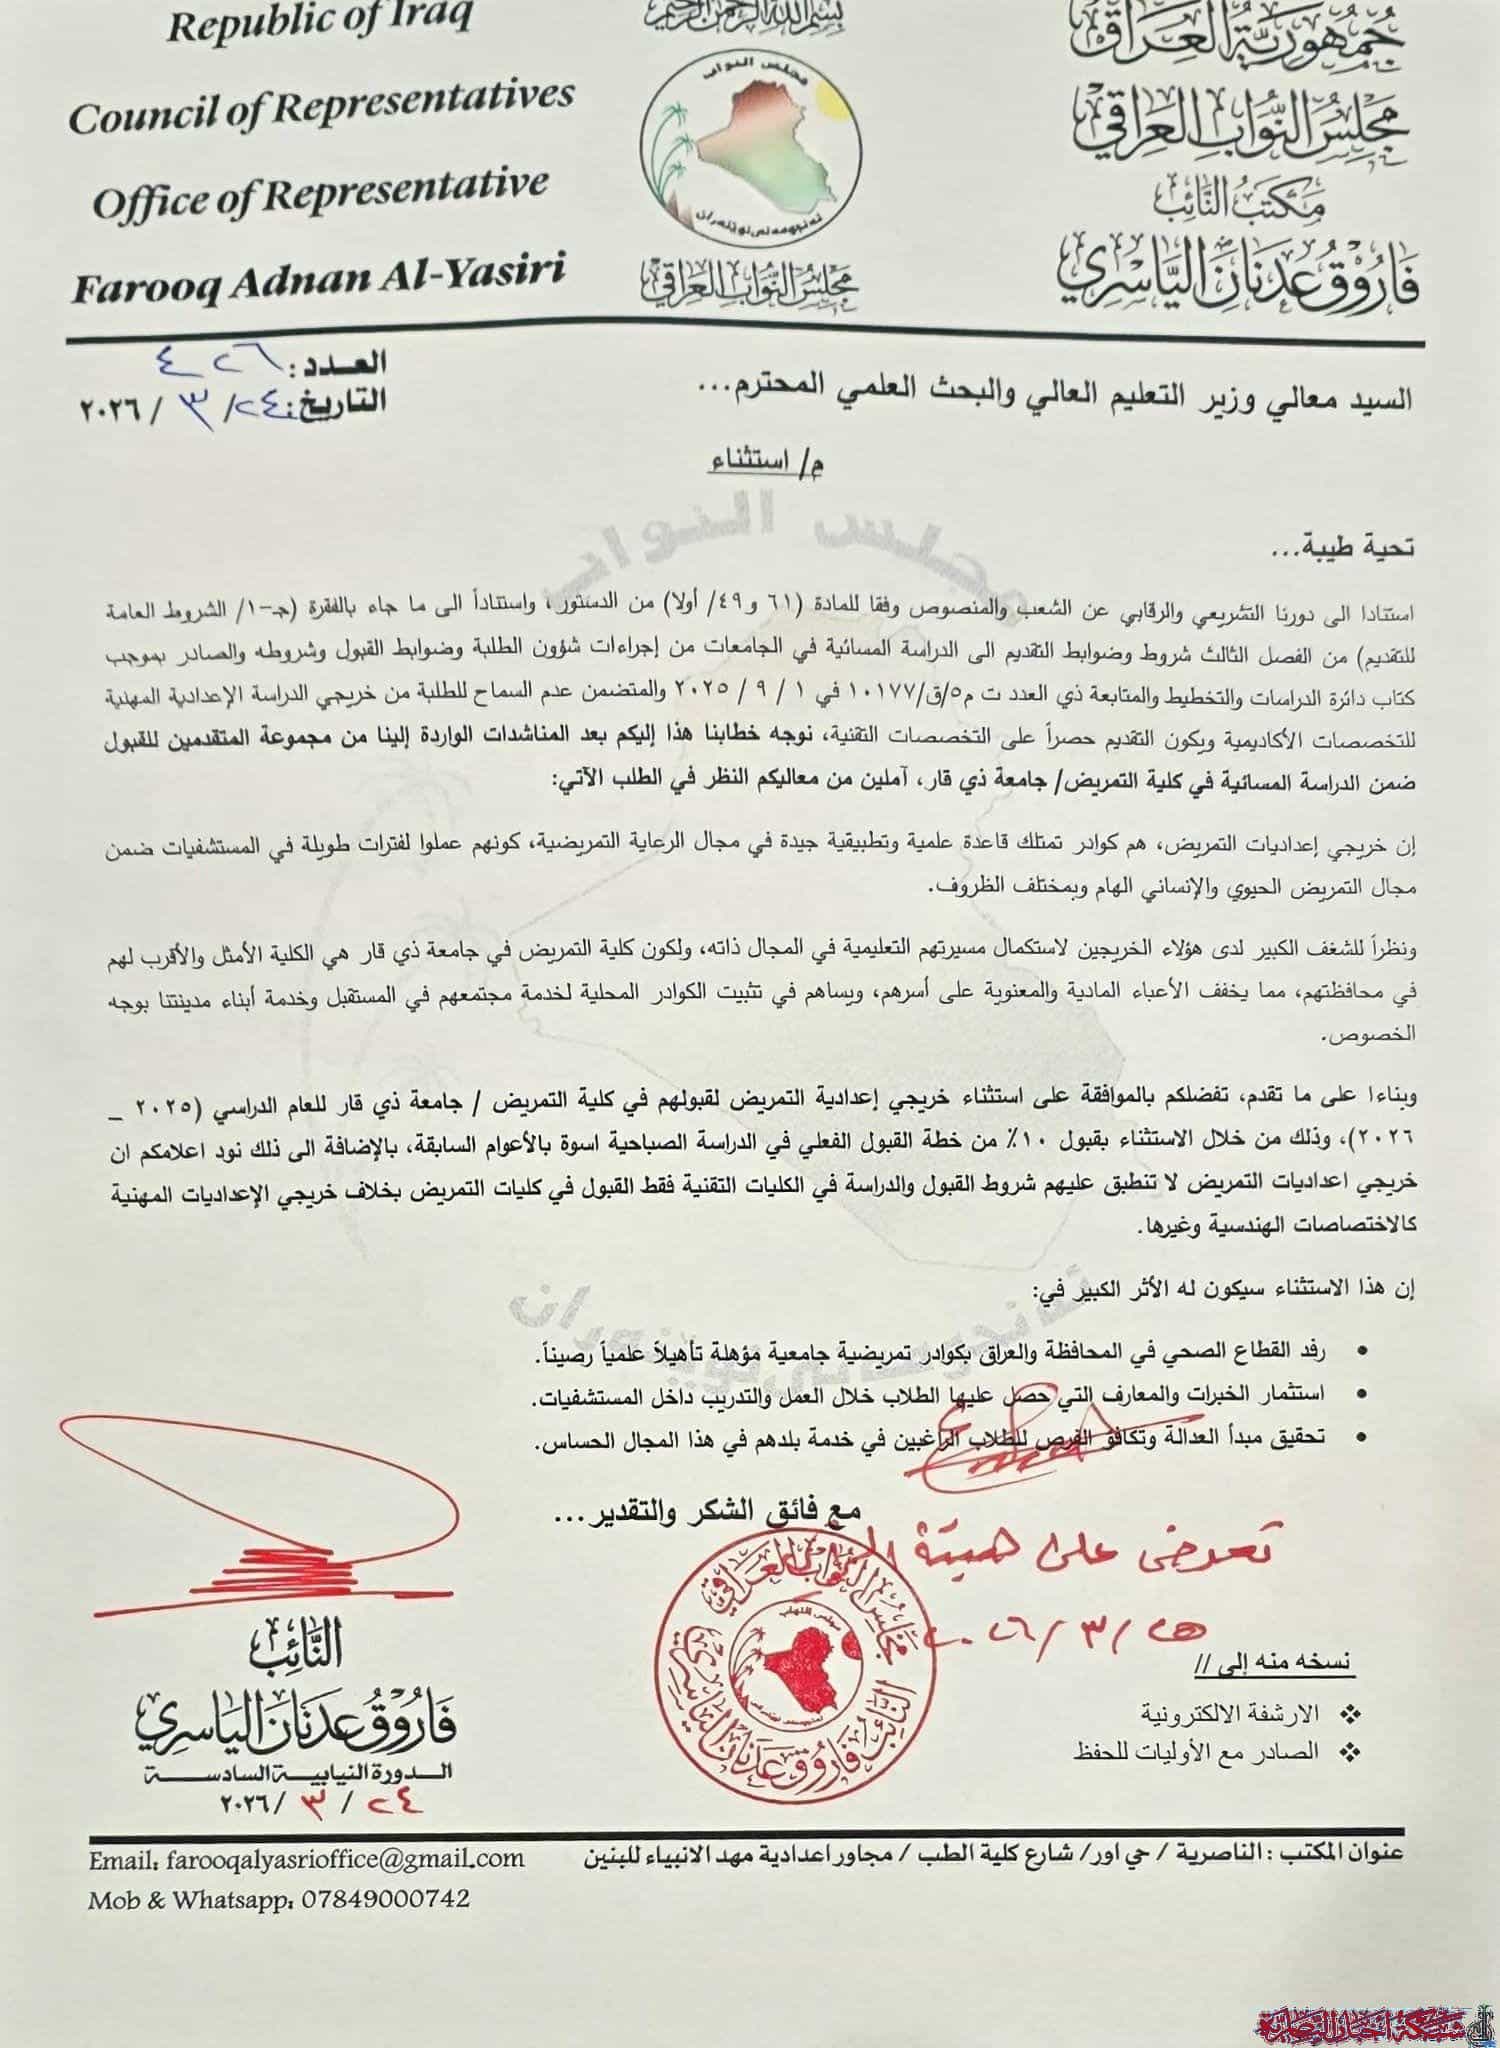 Republic of Iraq
Council of Representatives
Office of Representative
Farooq Adnan Al-Yasiri
بسم الله الرحمن الرحيم
مجلس النواب
مجلس النواب العراقي
جمهورية العراق
مجلس النواب العراقي
مكتب النائب
فاروق عدنان الياسري
العدد: ٤٢٦
التاريخ: ٢٤/ ٣ / ٢٠٢٦
السيد معالي وزير التعليم العالي والبحث العلمي المحترم...
م/ استثناء
تحية طيبة...
استنادا الى دورنا التشريعي والرقابي عن الشعب والمنصوص وفقا للمادة (٦١ و٤٩/ أولا) من الدستور، واستناداً الى ما جاء بالفقرة (جـ-١/ الشروط العامة
للتقديم) من الفصل الثالث شروط وضوابط التقديم الى الدراسة المسائية في الجامعات من إجراءات شؤون الطلبة وضوابط القبول وشروطه والصادر بموجب
كتاب دائرة الدراسات والتخطيط والمتابعة ذي العدد ت م٥/ق/١٠١٧٧ في ١ / ٩ / ٢٠٢٥ والمتضمن عدم السماح للطلبة من خريجي الدراسة الإعدادية المهنية
للتخصصات الأكاديمية ويكون التقديم حصراً على التخصصات التقنية، نوجه خطابنا هذا إليكم بعد المناشدات الواردة إلينا من مجموعة المتقدمين للقبول
ضمن الدراسة المسائية في كلية التمريض/ جامعة ذي قار، آملين من معاليكم النظر في الطلب الآتي:
إن خريجي إعداديات التمريض، هم كوادر تمتلك قاعدة علمية وتطبيقية جيدة في مجال الرعاية التمريضية، كونهم عملوا لفترات طويلة في المستشفيات ضمن
مجال التمريض الحيوي والإنساني الهام وبمختلف الظروف.
ونظراً للشغف الكبير لدى هؤلاء الخريجين لاستكمال مسيرتهم التعليمية في المجال ذاته، ولكون كلية التمريض في جامعة ذي قار هي الكلية الأمثل والأقرب لهم
في محافظتهم، مما يخفف الأعباء المادية والمعنوية على أسرهم، ويساهم في تثبيت الكوادر المحلية لخدمة مجتمعهم في المستقبل وخدمة أبناء مدينتنا بوجه
الخصوص.
وبناءا على ما تقدم، تفضلكم بالموافقة على استثناء خريجي إعدادية التمريض لقبولهم في كلية التمريض / جامعة ذي قار للعام الدراسي (٢٠٢٥ _
٢٠٢٦)، وذلك من خلال الاستثناء بقبول ١٠٪ من خطة القبول الفعلي في الدراسة الصباحية اسوة بالأعوام السابقة، بالإضافة الى ذلك نود اعلامكم ان
خريجي اعداديات التمريض لا تنطبق عليهم شروط القبول والدراسة في الكليات التقنية فقط القبول في كليات التمريض بخلاف خريجي الإعداديات المهنية
كالاختصاصات الهندسية وغيرها.
إن هذا الاستثناء سيكون له الأثر الكبير في:
• رفد القطاع الصحي في المحافظة والعراق بكوادر تمريضية جامعية مؤهلة تأهيلاً علمياً رصيناً.
• استثمار الخبرات والمعارف التي حصل عليها الطلاب خلال العمل والتدريب داخل المستشفيات.
• تحقيق مبدأ العدالة وتكافؤ الفرص للطلاب الراغبين في خدمة بلدهم في هذا المجال الحساس.
مع فائق الشكر والتقدير...
تعرض على هيئة
٢٠٢٦/٣/٢٥
مجلس النواب العراقي
النائب فاروق عدنان الياسري
النائب
فاروق عدنان الياسري
الدورة النيابية السادسة
٢٤ / ٣ /٢٠٢٦
نسخه منه إلى //
❖ الارشفة الالكترونية
❖ الصادر مع الأوليات للحفظ
عنوان المكتب : الناصرية / حي اور/ شارع كلية الطب / مجاور اعدادية مهد الانبياء للبنين
Email: farooqalyasrioffice@gmail.com
Mob & Whatsapp: 07849000742
شبكة اخبار الناصرية